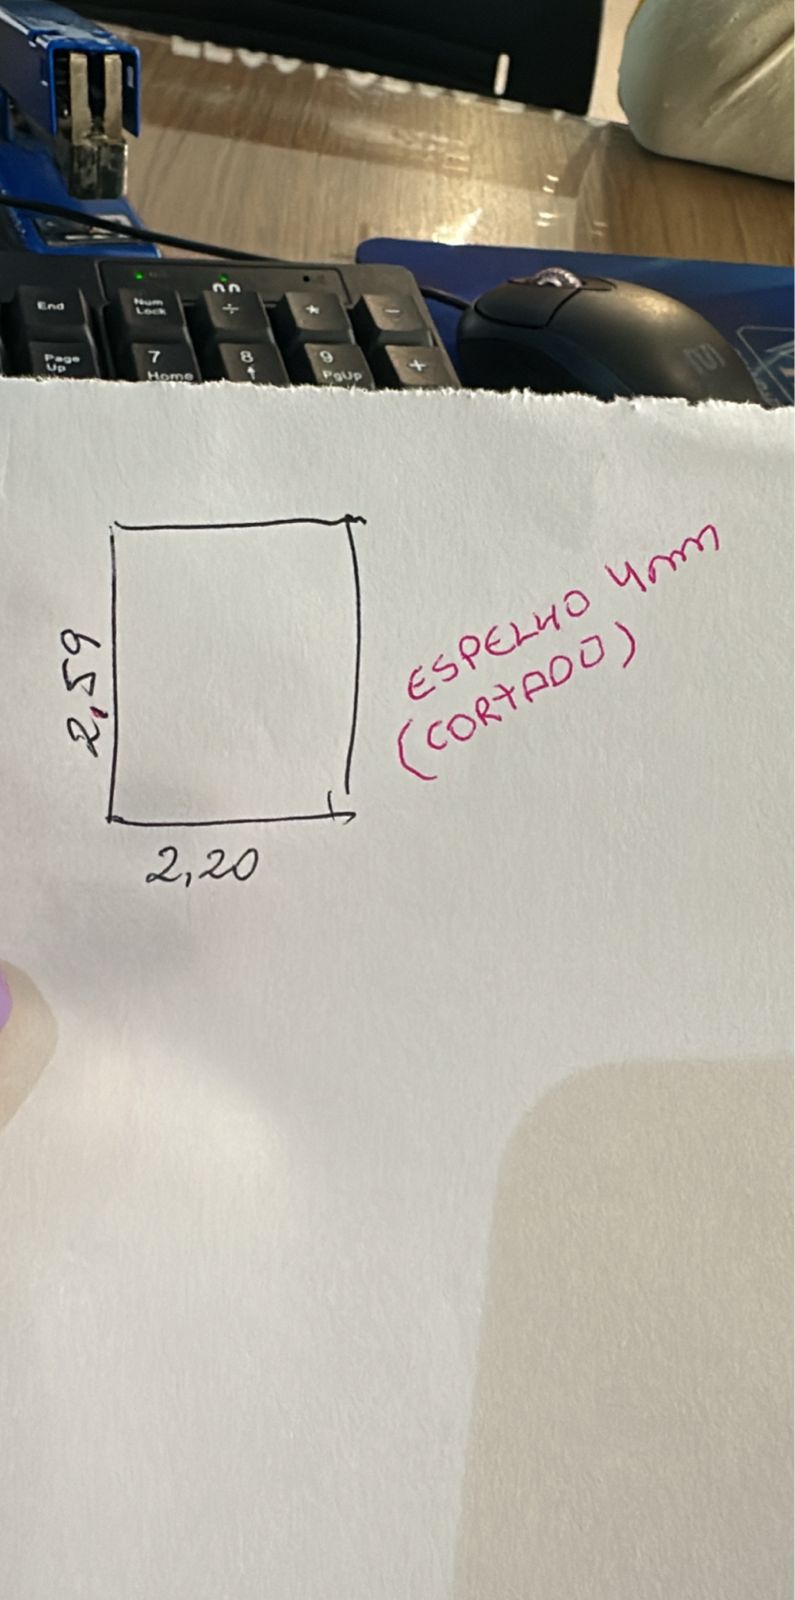 End
Num
Lock
÷
*
-
Page
Up
7
Home
8
↑
9
PgUp
+
2,59
ESPELHO 4mm
(CORTADO)
2,20